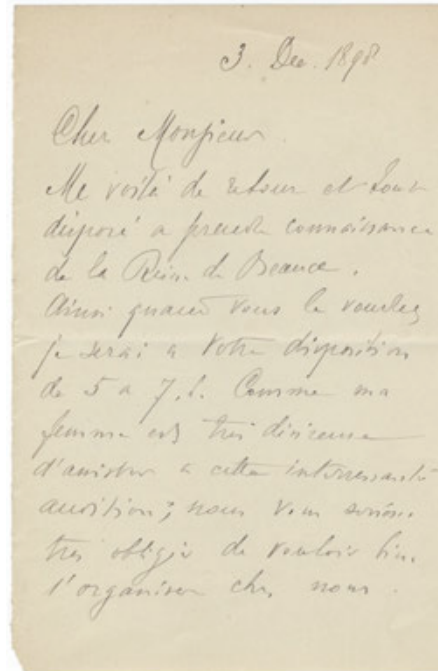 3. Dec. 1898
Cher Monsieur
Me voilà de retour et tout
disposé a prendre connaissance
de la Reine de Beauce.
Ainsi quand vous le voudrez
je serai a votre disposition
de 5 a 7 h. Comme ma
femme est très désireuse
d'assister a cette interressante
audition; nous vous serions
très obligés de vouloir bien
l'organiser chez nous.